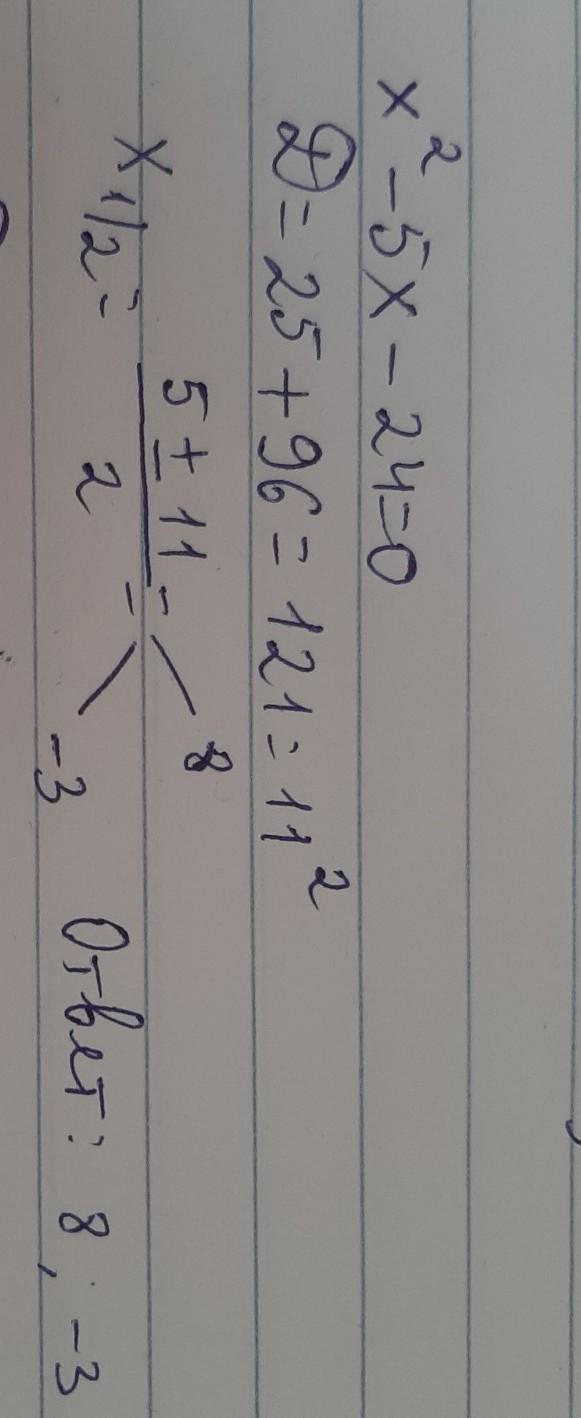 x² - 5x - 24 = 0
D = 25 + 96 = 121 = 11²
x 1/2 = (5 ± 11)/2 = 8
= -3 Ответ: 8; -3